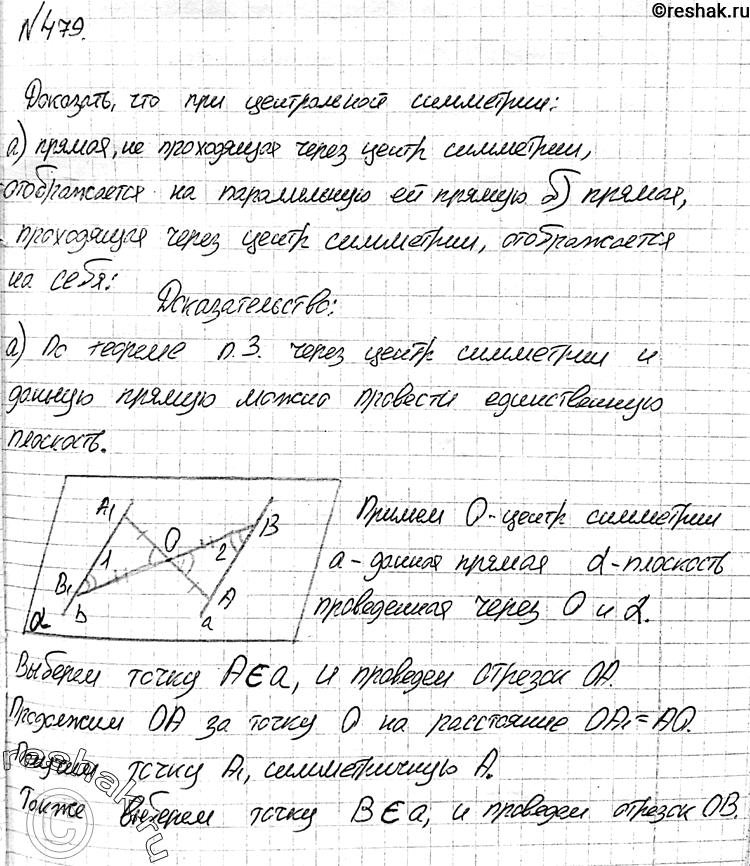 ©reshak.ru
№479.
Доказать, что при центральной симметрии:
а) прямая, не проходящая через центр симметрии,
отображается на паралельную ей прямую б) прямая,
проходящая через центр симметрии, отображается
на себя:
Доказательство:
а) По теореме п.3. через центр симметрии и
данную прямую можно провести единственную
плоскость.
A₁ O 2 B
1
B₁ b A a
α
Примем O-центр симметрии
a-данная прямая α-плоскость
проведенная через O и α.
Выберем точку A∈a, и проведем отрезок OA.
Продолжим OA за точку O на расстояние OA₁=AO.
Получим точку A₁, симметричную A.
Также выберем точку B∈a, и проведем отрезок OB.
reshak.ru
©